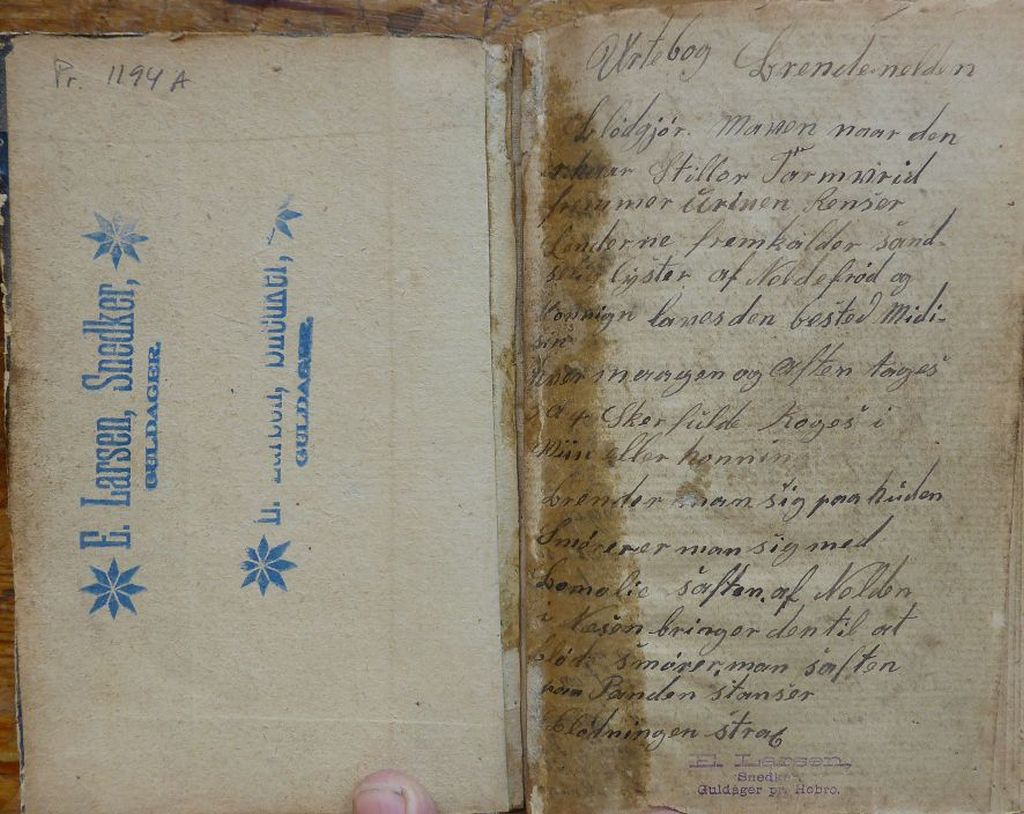 Pr. 1194 A
E. Larsen, Snedker,
GULDAGER.
E. Larsen, Snedker,
GULDAGER.
Urtebog Brendenelden
blödgjór. Maven naar den
Stiller Tarmvrid
fremmer Urinen Renser
Lenderne fremkalder sand-
lyster af Neldefrød og
Honnign laves den bested Midi-
sin
hver maargen og Aften tages
Skerfulde Koges i
Miin eller honnin
Brender man sig paa huden
Smørerer man sig med
Bomolie saften af Nelden
i Nesen bringer den til at
bløde smører man saften
paa Panden stanser
blødningen strax
E. Larsen,
Snedker,
Guldager pr. Hobro.